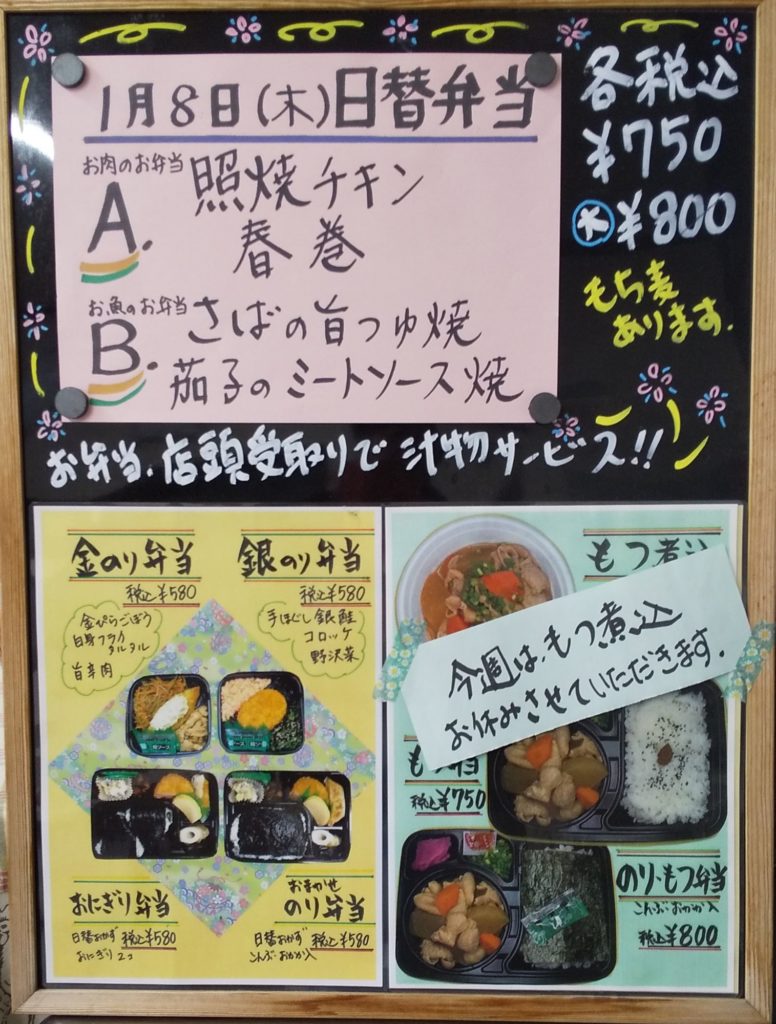 1月8日(木)日替弁当
お肉のお弁当
A.
照焼チキン
春巻
お魚のお弁当
B.
さばの旨つゆ焼
茄子のミートソース焼
各税込
¥750
大¥800
もち麦
あります.
お弁当、店頭受取りで汁物サービス!!
金のり弁当
税込¥580
金ぴらごぼう
白身フライ
タルタル
旨辛肉
銀のり弁当
税込¥580
手ほぐし銀鮭
コロッケ
野沢菜
おにぎり弁当
日替おかず 税込¥580
おにぎり2コ
おまかせ
のり弁当
日替おかず 税込¥580
こんぶ・おかか入
もつ煮込
今週は、もつ煮込
お休みさせていただきます.
税込¥750
のり・もつ弁当
こんぶ・おかか入
税込¥800